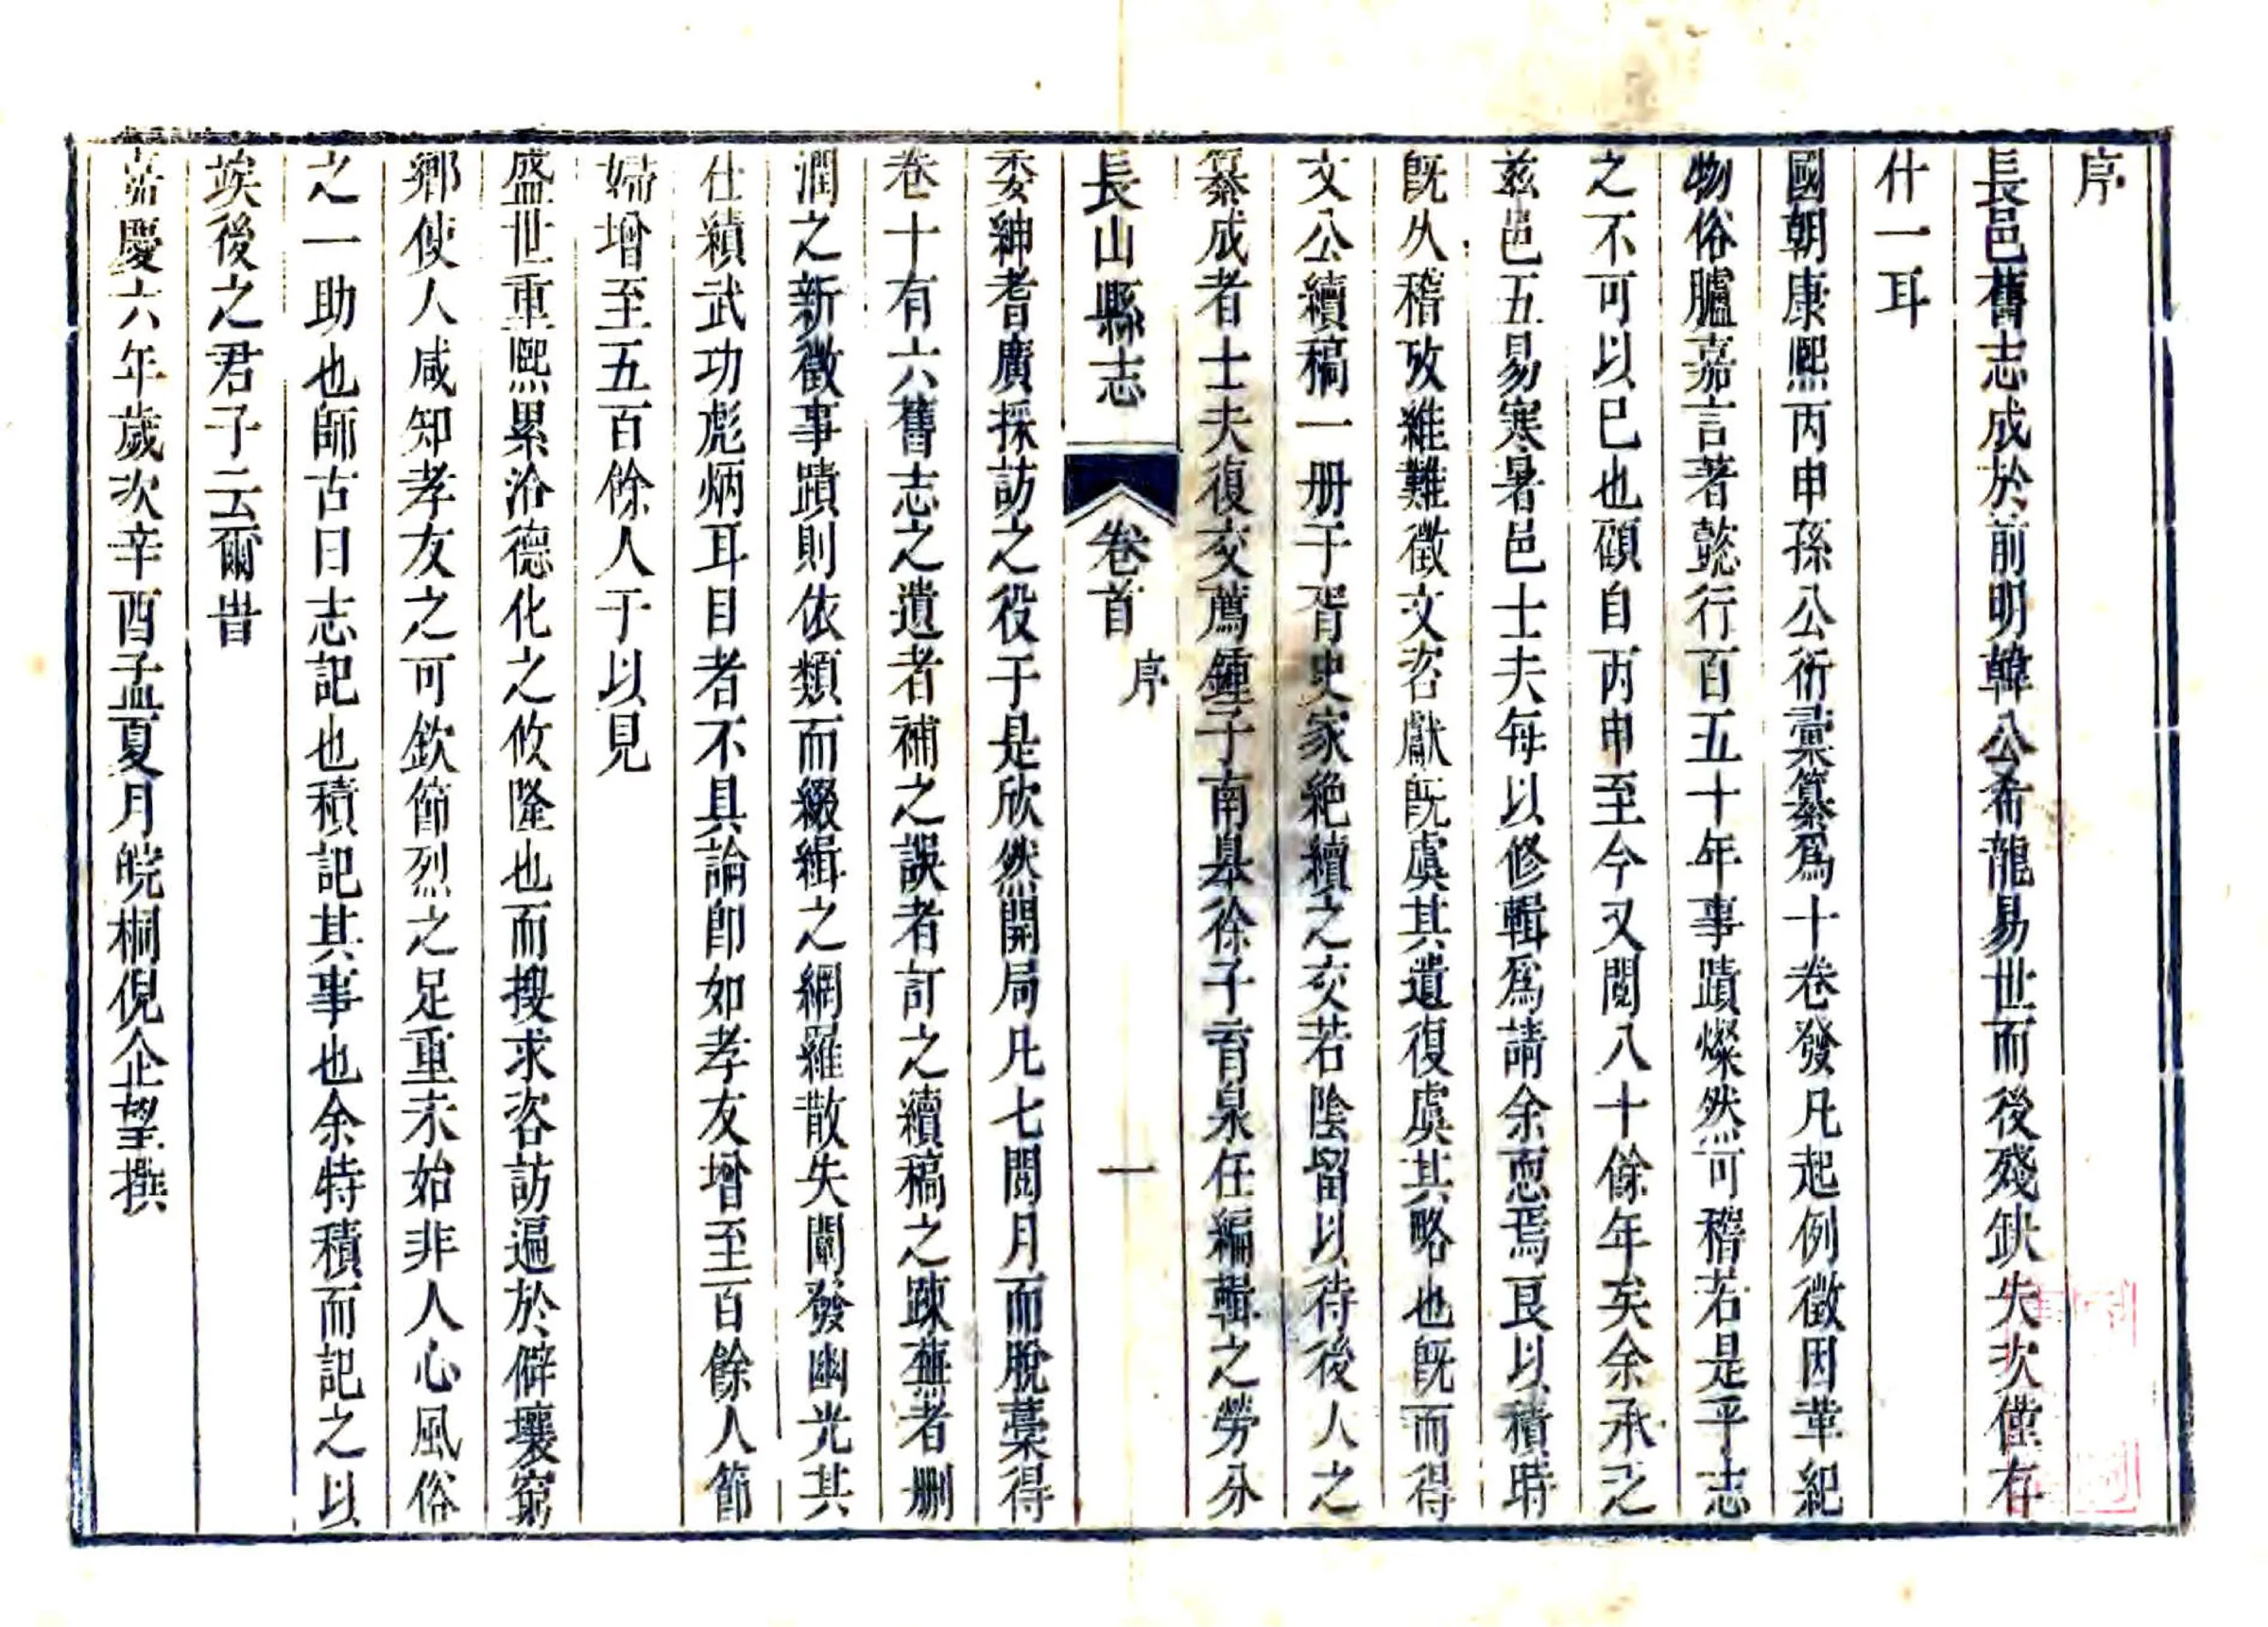 序
長邑舊志成於前明韓公希龍易世而後殘缺失次僅存
什一耳
國朝康熙丙申孫公衍彙纂爲十卷發凡起例徵因革紀
物俗臚嘉言著懿行百五十年事蹟燦然可稽若是乎志
之不可以已也顧自丙申至今又閱八十餘年矣余承乏
兹邑五易寒暑邑士夫每以修輯爲請余恧焉良以積時
旣久稽攷維難徵文咨獻旣虞其遺復虞其略也旣而得
文公續稿一册于胥史家絶續之交若陰留以待後人之
纂成者士夫復交薦鍾子南臯徐子育泉任編輯之勞分
長山縣志
卷首
序
一
委紳耆廣採訪之役于是欣然開局凡七閱月而脫藁得
卷十有六舊志之遺者補之誤者訂之續稿之踈蕪者删
潤之新徵事蹟則依類而綴緝之網羅散失闡發幽光其
仕績武功彪炳耳目者不具論卽如孝友增至百餘人節
婦增至五百餘人于以見
盛世重熙累洽德化之攸隆也而搜求咨訪遍於僻壤窮
鄉使人咸知孝友之可欽節烈之足重未始非人心風俗
之一助也師古曰志記也積記其事也余特積而記之以
竢後之君子云爾旹
嘉慶六年歲次辛酉孟夏月皖桐倪企望撰